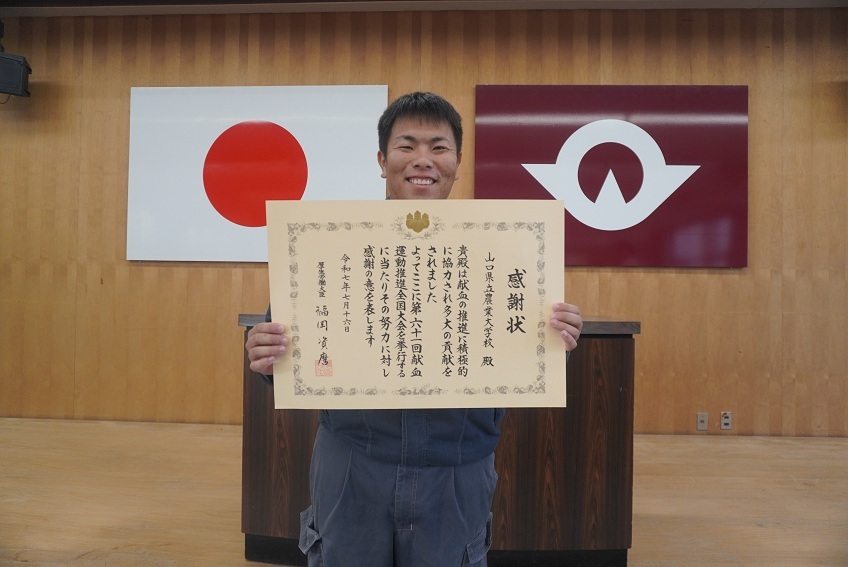 感謝状
山口県立農業大学校 殿
貴殿は献血の推進に積極的
に協力され多大の貢献を
されました
よってここに第六十一回献血
運動推進全国大会を挙行する
に当たりその努力に対し
感謝の意を表します
令和七年七月十六日
厚生労働大臣 福岡資麿